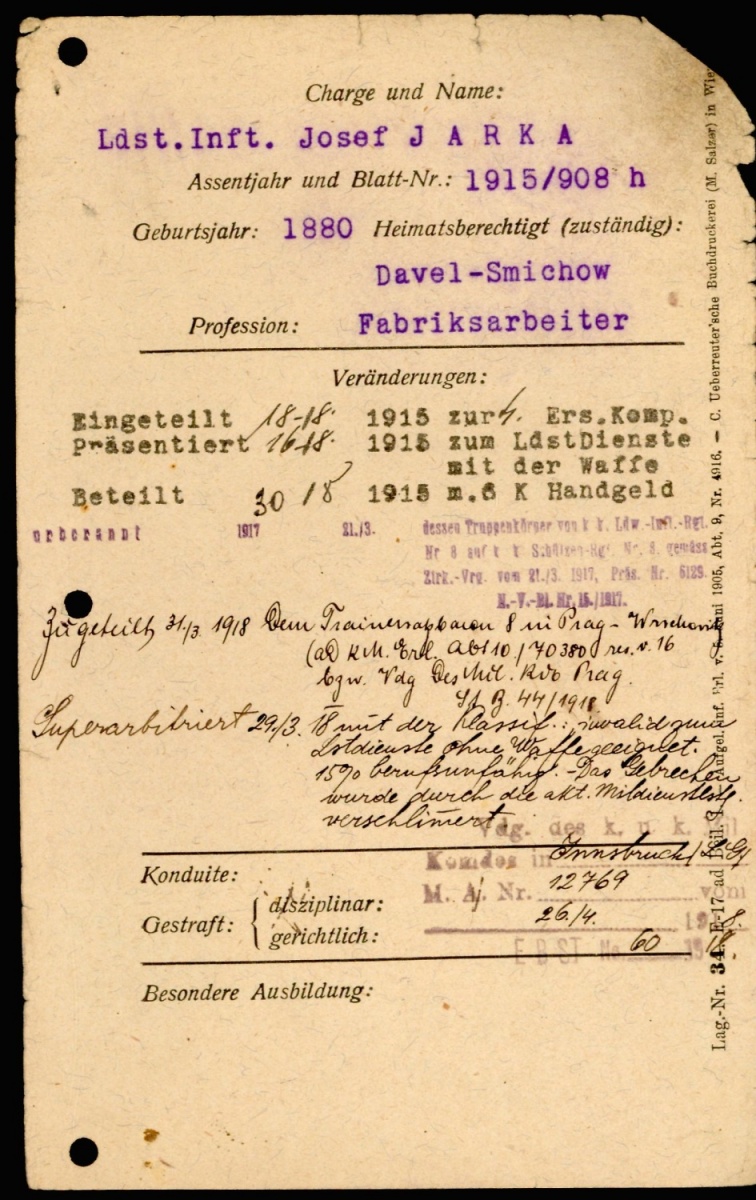 Charge und Name:
Ldst.Inft. Josef J A R K A
Assentjahr und Blatt-Nr.: 1915/908 h
Geburtsjahr: 1880 Heimatsberechtigt (zuständig):
Davel-Smichow
Profession: Fabriksarbeiter
Veränderungen:
Eingeteilt 18-/8. 1915 zur 4. Ers.Komp.
Präsentiert 16/8. 1915 zum LdstDienste
mit der Waffe
Beteilt 30/8 1915 m. 6 K Handgeld
1917 21./3. dessen Truppenkörper von k k. Ldw.-Inft.-Rgt.
Nr 8 auf k k Schützen-Rgt. Nr. 8, gemäss
Zirk.-Vrg. vom 21./3. 1917, Präs. Nr. 6129.
N.-V.-Bl. Nr. 15./1917.
Zugeteilt 31./3 1918 Dem 8 in Prag -
(ad K.M. Erl. Abt 10 / 70380 res. v. 16
bzw. Vdg Des Mil. Kdo Prag.
44/1918
Superarbitriert 29./3. 18 mit der Klassif.: invalid zum
Lstdienste ohne Waffe geeignet.
15% berufsunfähig. - Das Gebrechen
wurde durch die akt. Mildienstlstg.
verschlimert
Vdg. des k. u. k. Mil
Komdos in Innsbruck
Konduite:
M. A. Nr. 12769 vom
Gestraft: disziplinar:
26./4. 1918.
gerichtlich:
60 18
Besondere Ausbildung:
Lag.-Nr. 34. E-17 ad Beil. 1905, Abt. 9, Nr. 4916. — C. Ueberreuter'sche Buchdruckerei (M. Salzer) in